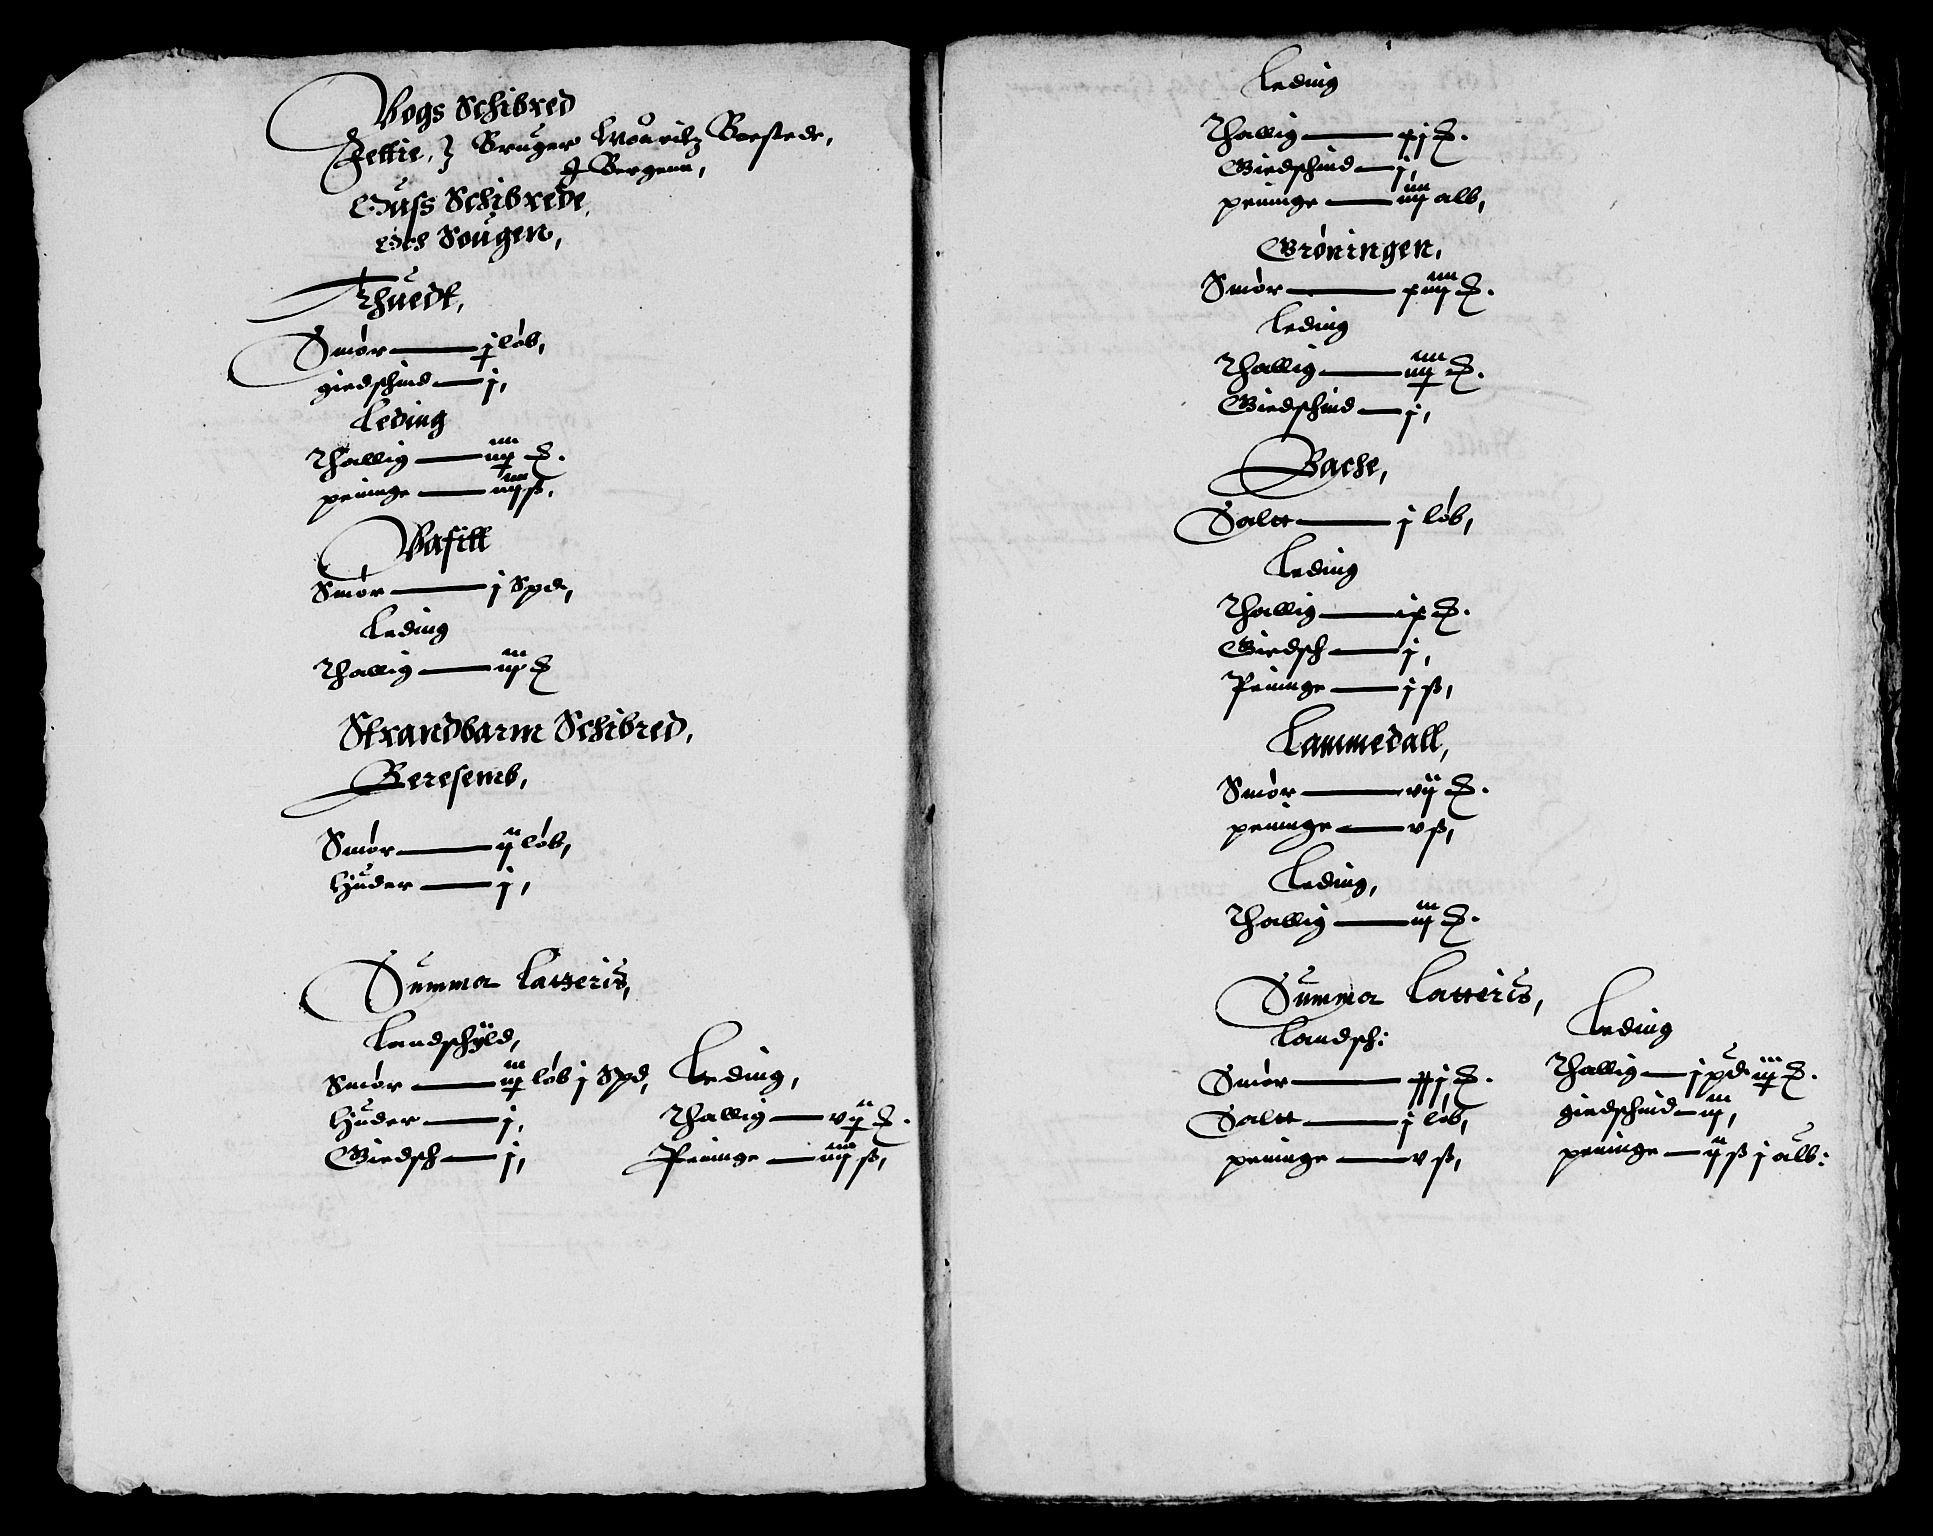 Vogs Schibred
Fettie, Bruger Mouritz Bostede,
I Bergenn,
Guss Schibrede,
Och Sougen,
Thuedt,
Smør — j løb,
giedschind — j,
Leding
Thallig — iiij
peninge — iiij ß,
Vafill
Smør — j Spd,
Leding
Thallig — iij
Strandbarm Schibred,
Beresemb,
Smør — ij løb,
Huder — j,
Summa Latteris,
Landschyld,
Smør — iij løb j Spd,
Huder — j,
Giedsch — j,
Leding,
Thallig — vij
Peninge — iiij ß,
Leding
Thallig — xj
Giedschind — j,
peninge — iiij alb,
Grøningen,
Smør — xiiij
Leding
Thallig — iiij
Giedschind — j,
Bache,
Saltt — j løb,
Leding
Thallig — ix
Giedsch — j,
Peninge — j ß,
Lammedall,
Smør — vij
peninge — v ß,
Leding,
Thallig — iij
Summa Latteris,
Landsch:
Smør — xxj
Saltt — j løb,
peninge — v ß,
Leding
Thallig — j pd iij
giedschind — iij,
peninge — ij ß j alb: